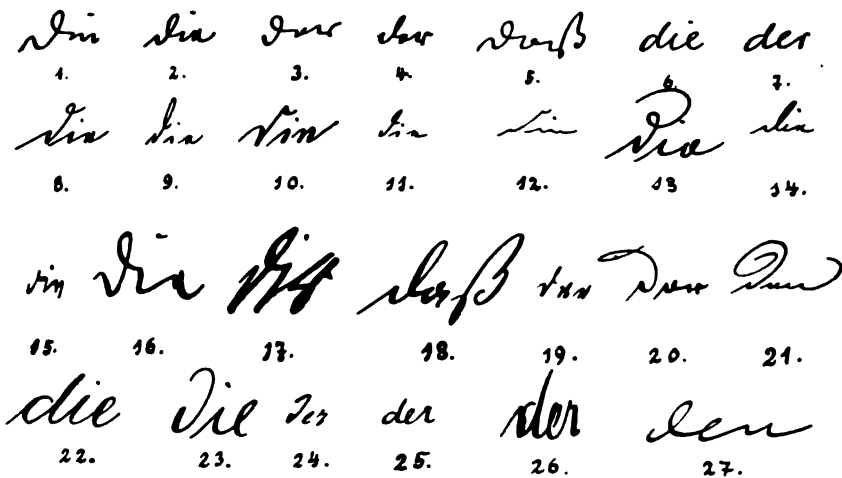 die die der der daß die der
1. 2. 3. 4. 5. 6. 7.
die die die die die die die
8. 9. 10. 11. 12. 13 14.
die die die daß der der den
15. 16. 17. 18. 19. 20. 21.
die die der der der den
22. 23. 24. 25. 26. 27.